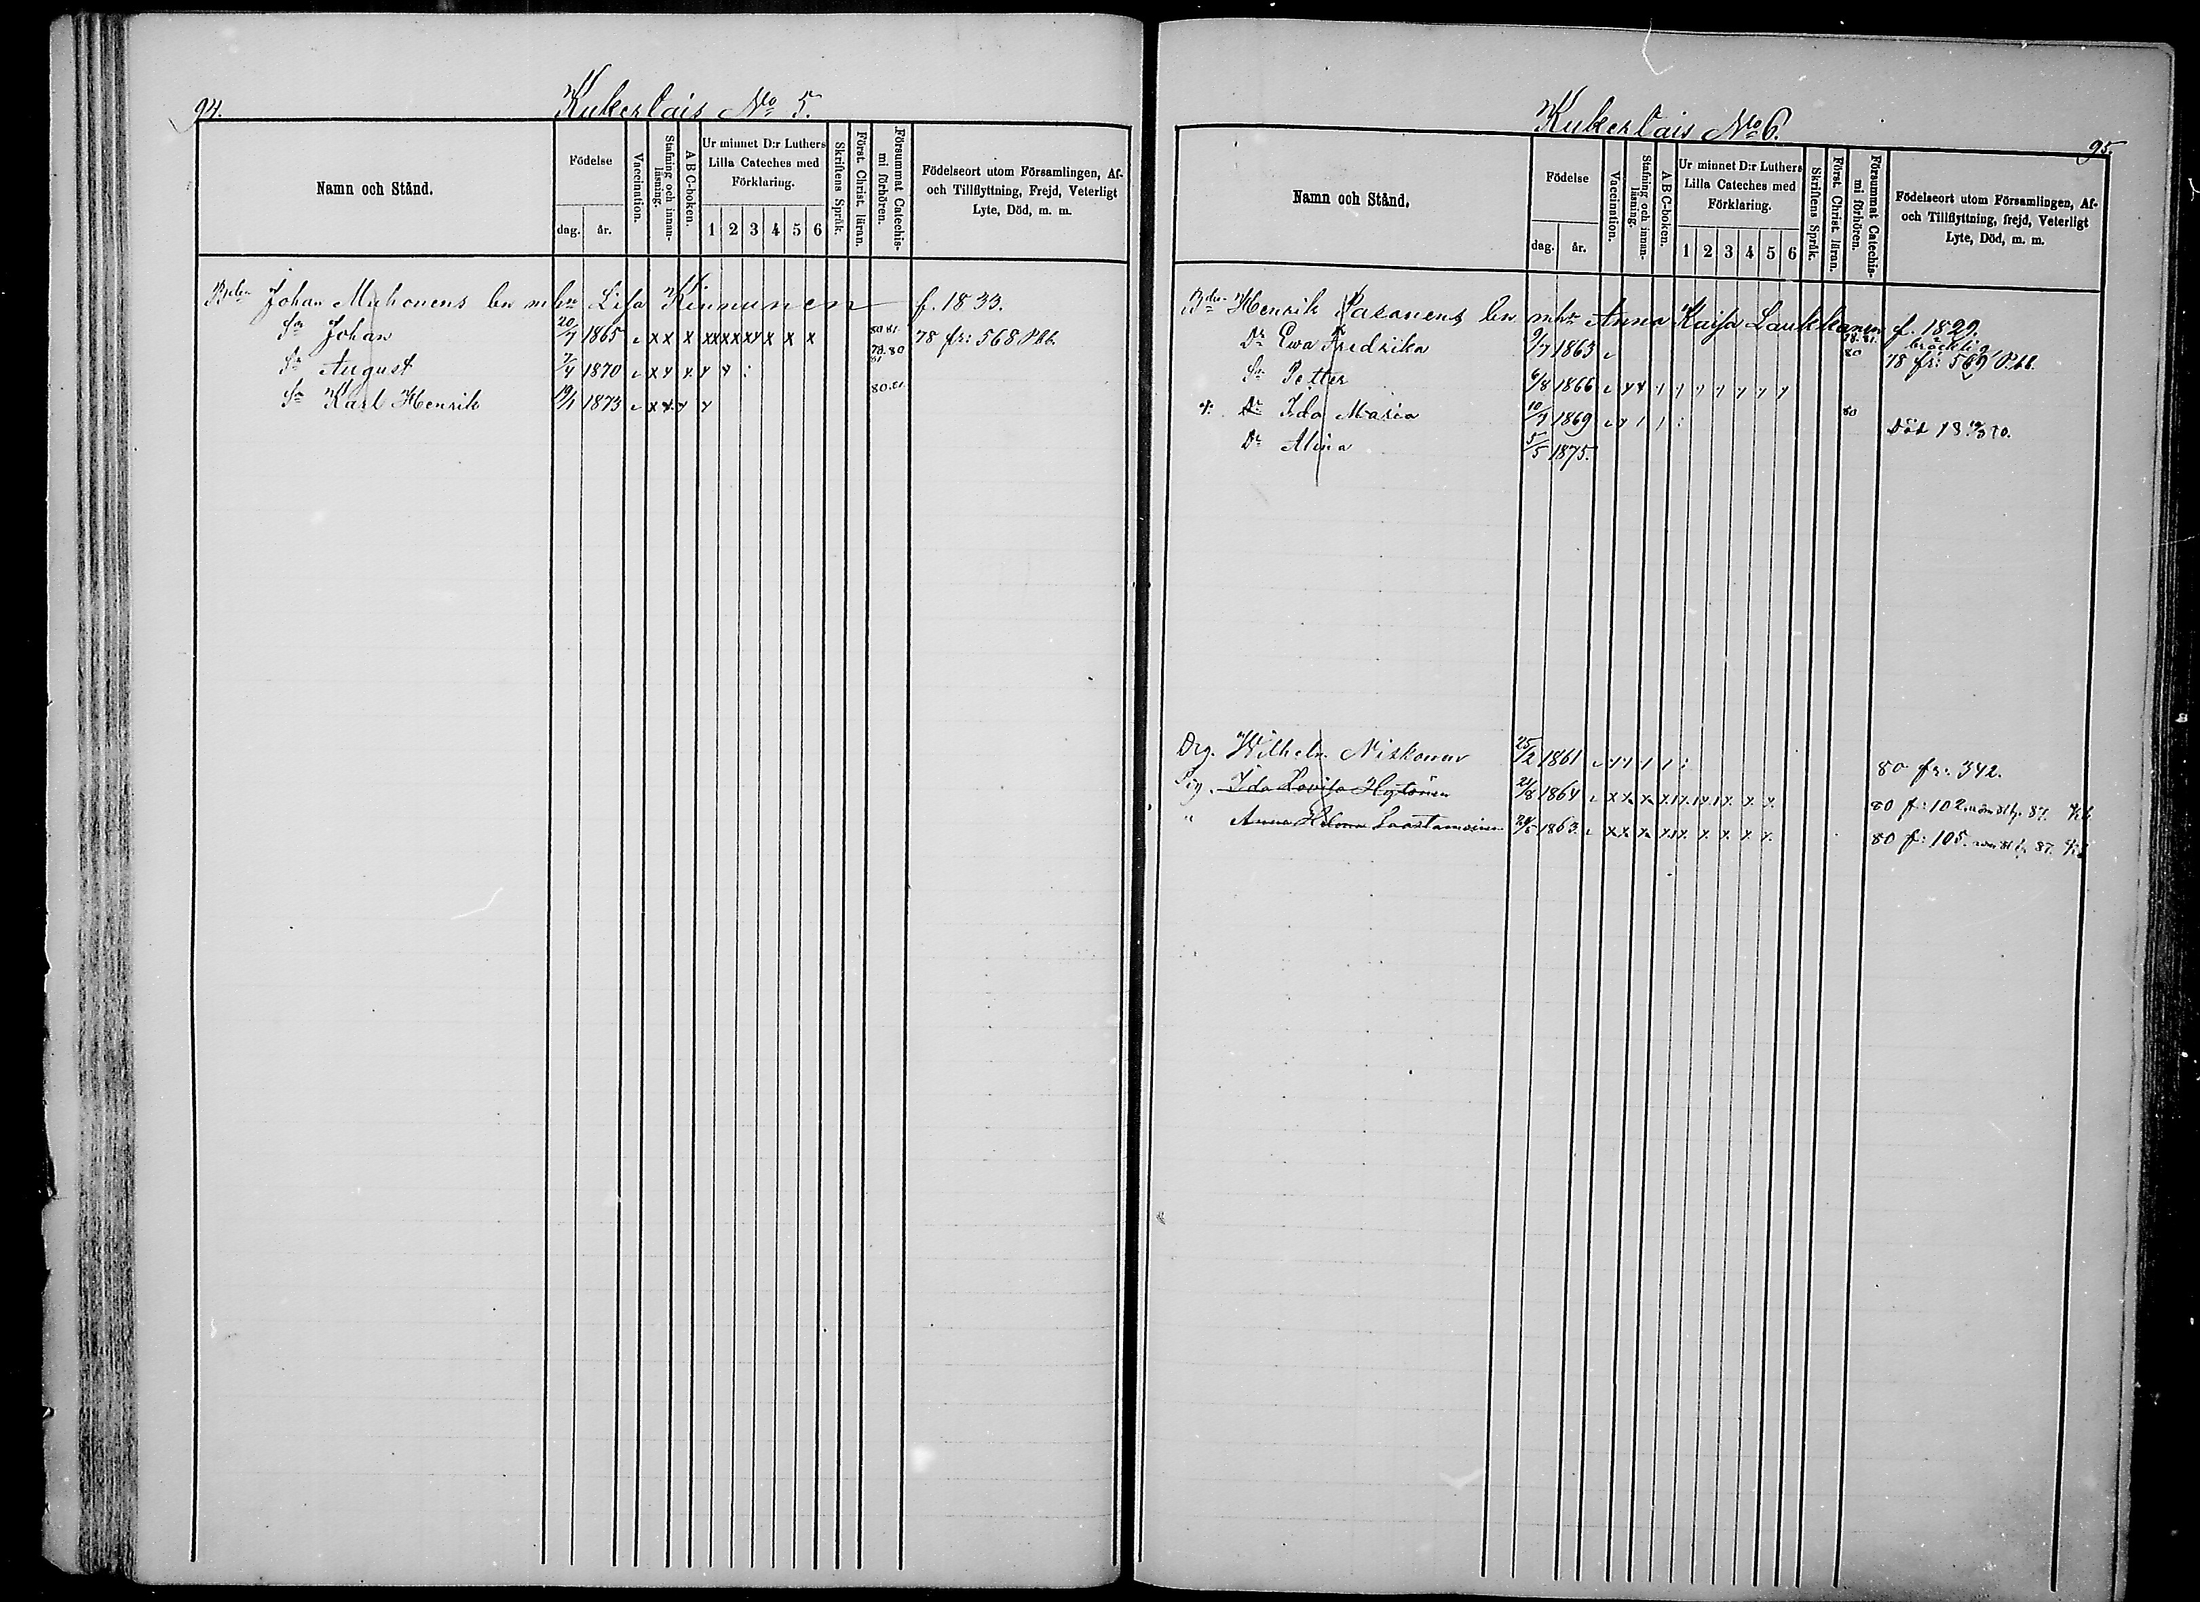 94.
Kukerlais No 5.
Namn och Stånd.
Födelse
dag.
år.
Vaccination.
Stafning och innan-
läsning.
A B C-boken.
Ur minnet D:r Luthers
Lilla Cateches med
Förklaring.
1 2 3 4 5 6
Skriftens Språk.
Först. Christ. läran.
Försummat Catechis-
mi förhören.
Födelseort utom Församlingen, Af-
och Tillflyttning, Frejd, Veterligt
Lyte, Död, m. m.
Johan Muhonens bn m hu Lisa Kinnunen f. 1833.
Sn Johan 20/7 1865 x x x xx xx xx x x x 80.81. 78 fr: 568 Pbb.
Sn August 7/4 1870 79.80 81
Sn Karl Henrik 19/1 1873 80.81
Kukerlais No 6.
95.
Namn och Stånd.
Födelse
dag.
år.
Vaccination.
Stafning och innan-
läsning.
A B C-boken.
Ur minnet D:r Luthers
Lilla Cateches med
Förklaring.
1 2 3 4 5 6
Skriftens Språk.
Först. Christ. läran.
Försummat Catechis-
mi förhören.
Födelseort utom Församlingen, Af-
och Tillflyttning, frejd, Veterligt
Lyte, Död, m. m.
Henrik Pasanens bn m hu Anna Kaisa Laukkanen f. 1829.
Dr Ewa Fredrika 9/7 1863 78.81. 80 bräcklig 78 fr: 569 Pbb.
Sn Petter 6/8 1866
Dr Ida Maria 10/4 1869 80 Död 18 80.
Dr Alina 5/5 1875.
Drg. Wilhelm Niskanen 25/2 1861 80 fr: 342.
Pig. Ida Lovisa Hytönen 21/8 1864 80 f: 102 87.
" Anna Helena Saastamoinen 1863 80 f: 105. 87.